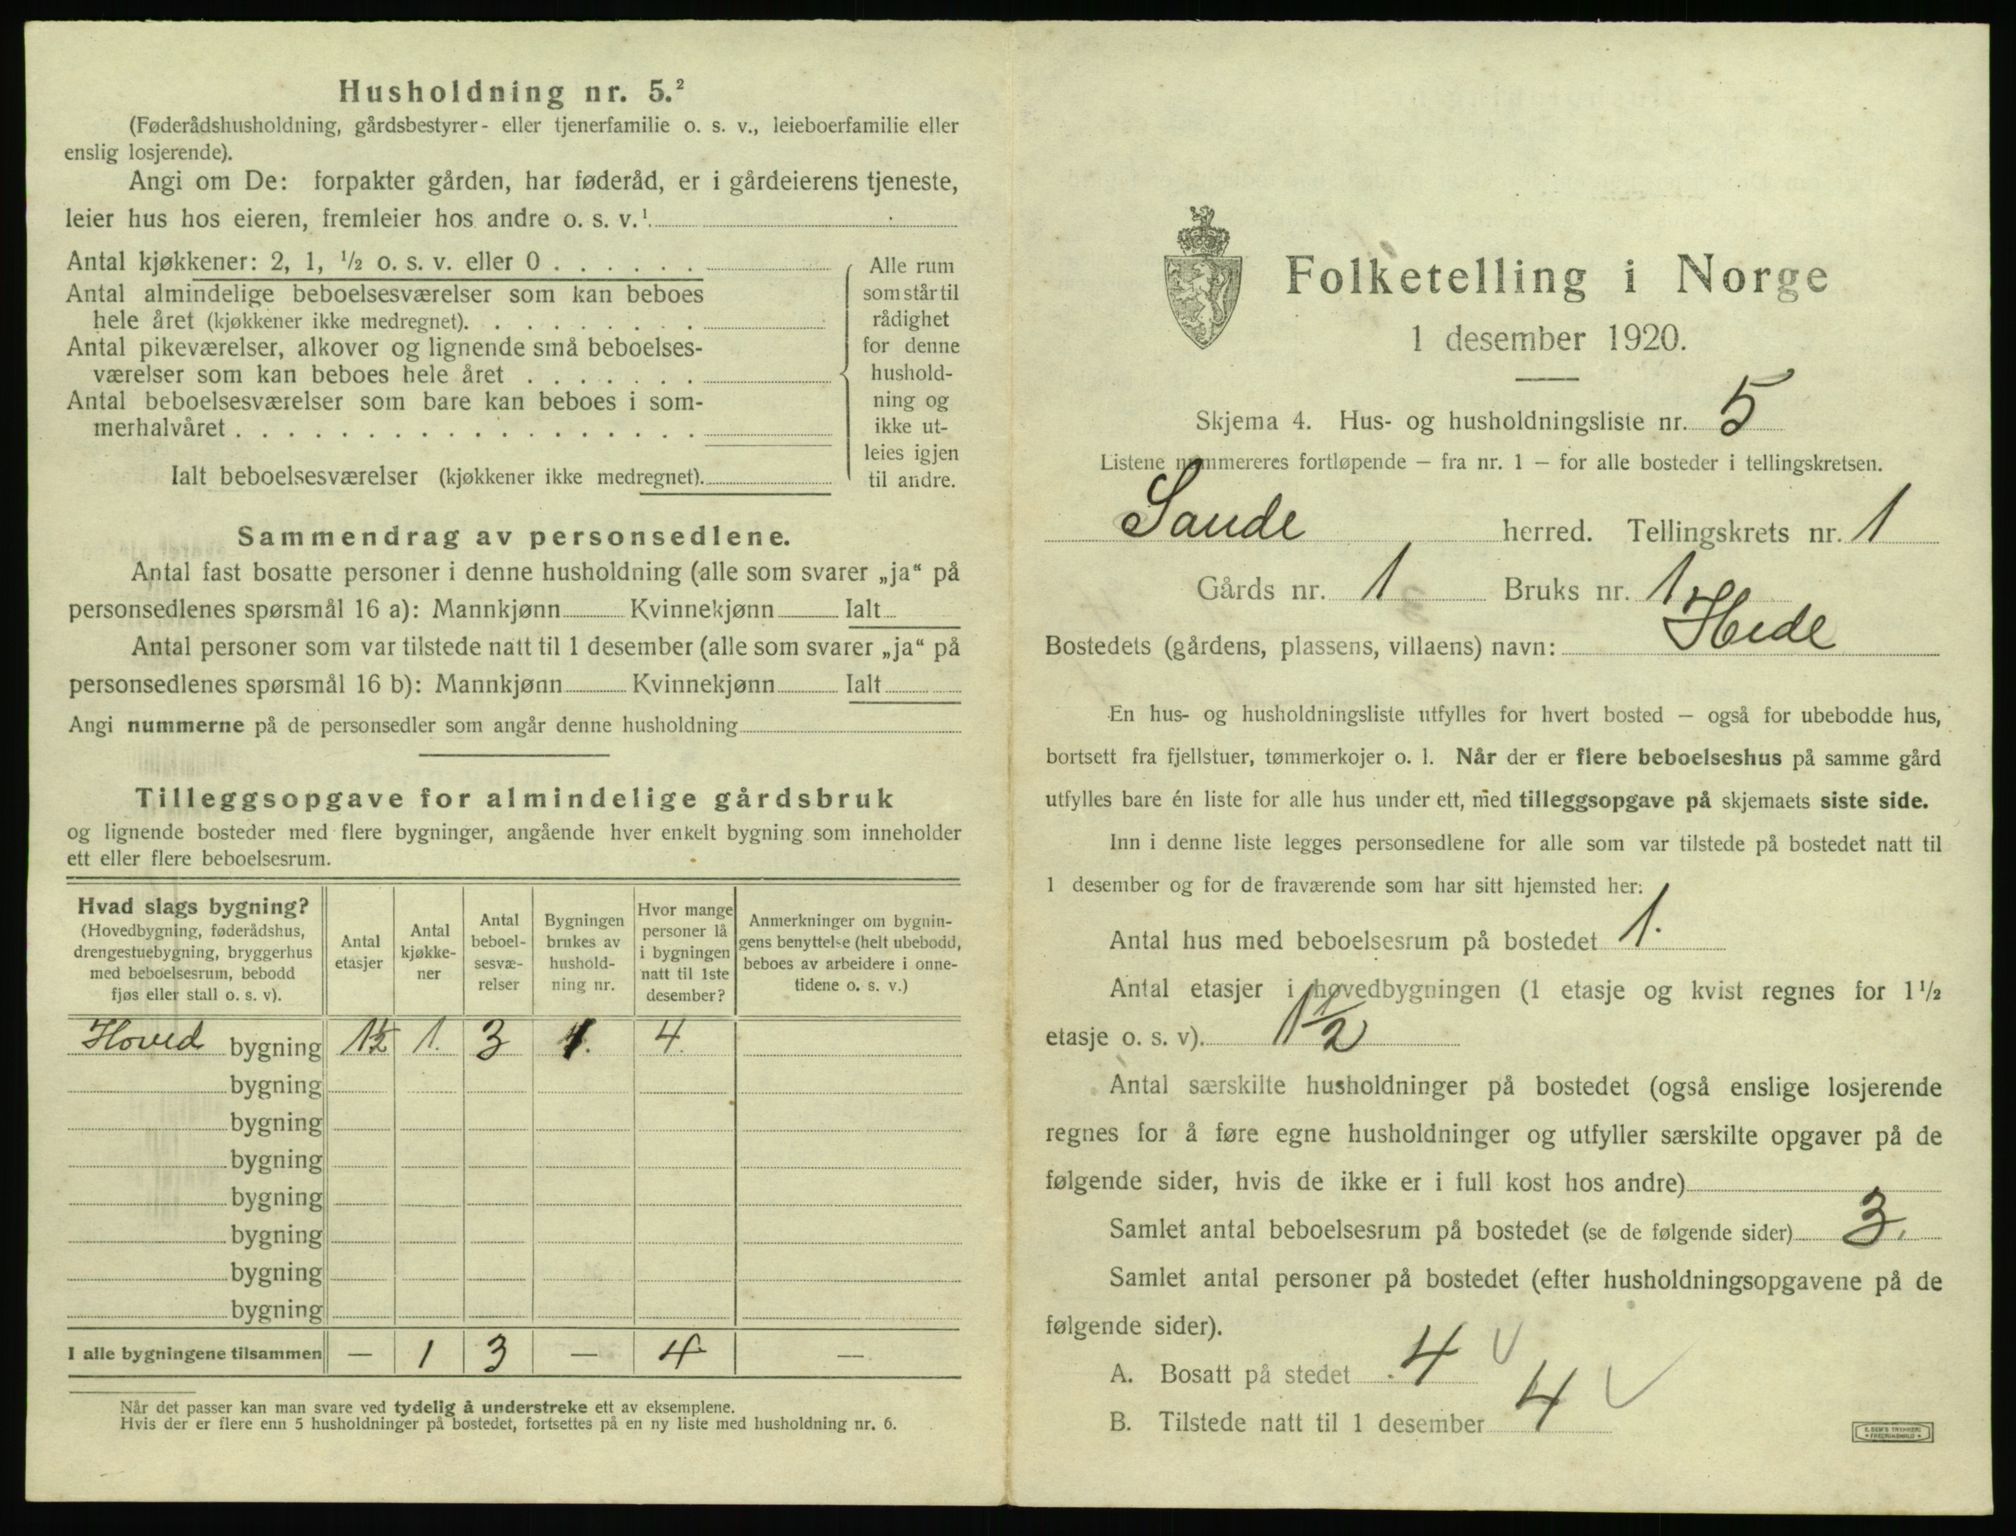 Husholdning nr. 5.²
(Føderådshusholdning, gårdsbestyrer- eller tjenerfamilie o. s. v., leieboerfamilie eller
enslig losjerende).
Angi om De: forpakter gården, har føderåd, er i gårdeierens tjeneste,
leier hus hos eieren, fremleier hos andre o. s. v.¹
Antal kjøkkener: 2, 1, ½ o. s. v. eller 0 . . . . . .
Antal almindelige beboelsesværelser som kan beboes
hele året (kjøkkener ikke medregnet). . . . . . . . .
Antal pikeværelser, alkover og lignende små beboelses-
værelser som kan beboes hele året . . . . . . .
Antal beboelsesværelser som bare kan beboes i som-
merhalvåret . . . . . . . . . . . . . . . . . .
Ialt beboelsesværelser (kjøkkener ikke medregnet).
Alle rum
som står til
rådighet
for denne
hushold-
ning og
ikke ut-
leies igjen
til andre.
Sammendrag av personsedlene.
Antal fast bosatte personer i denne husholdning (alle som svarer „ja“ på
personsedlenes spørsmål 16 a): Mannkjønn Kvinnekjønn Ialt
Antal personer som var tilstede natt til 1 desember (alle som svarer „ja“ på
personsedlenes spørsmål 16 b): Mannkjønn Kvinnekjønn Ialt
Angi nummerne på de personsedler som angår denne husholdning
Tilleggsopgave for almindelige gårdsbruk
og lignende bosteder med flere bygninger, angående hver enkelt bygning som inneholder
ett eller flere beboelsesrum.
Hvad slags bygning?
(Hovedbygning, føderådshus,
drengestuebygning, bryggerhus
med beboelsesrum, bebodd
fjøs eller stall o. s. v).
Antal
etasjer
Antal
kjøkke-
ner
Antal
beboel-
sesvæ-
relser
Bygningen
brukes av
hushold-
ning nr.
Hvor mange
personer lå
i bygningen
natt til 1ste
desember?
Anmerkninger om bygnin-
gens benyttelse (helt ubebodd,
beboes av arbeidere i onne-
tidene o. s. v.)
Hoved bygning 1½ 1. 3 1. 4.
bygning
bygning
bygning
bygning
bygning
bygning
bygning
I alle bygningene tilsammen — 1 3 — 4 —
Når det passer kan man svare ved tydelig å understreke ett av eksemplene.
Hvis der er flere enn 5 husholdninger på bostedet, fortsettes på en ny liste med husholdning nr. 6.
Folketelling i Norge
1 desember 1920.
Skjema 4. Hus- og husholdningsliste nr. 5
Listene nummereres fortløpende — fra nr. 1 — for alle bosteder i tellingskretsen.
Sande herred. Tellingskrets nr. 1
Gårds nr. 1 Bruks nr. 1
Bostedets (gårdens, plassens, villaens) navn: Hide
En hus- og husholdningsliste utfylles for hvert bosted — også for ubebodde hus,
bortsett fra fjellstuer, tømmerkojer o. l. Når der er flere beboelseshus på samme gård
utfylles bare én liste for alle hus under ett, med tilleggsopgave på skjemaets siste side.
Inn i denne liste legges personsedlene for alle som var tilstede på bostedet natt til
1 desember og for de fraværende som har sitt hjemsted her.
Antal hus med beboelsesrum på bostedet 1.
Antal etasjer i hovedbygningen (1 etasje og kvist regnes for 1½
etasje o. s. v). 1½
Antal særskilte husholdninger på bostedet (også enslige losjerende
regnes for å føre egne husholdninger og utfyller særskilte opgaver på de
følgende sider, hvis de ikke er i full kost hos andre)
Samlet antal beboelsesrum på bostedet (se de følgende sider) 3.
Samlet antal personer på bostedet (efter husholdningsopgavene på de
følgende sider).
A. Bosatt på stedet 4
B. Tilstede natt til 1 desember 4